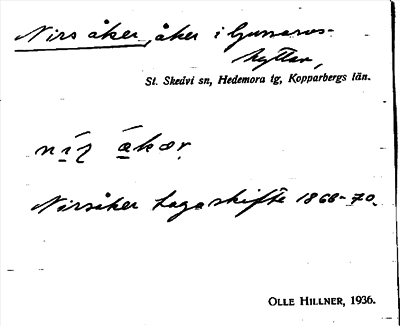 Nirsåker, åker i Gunnars-
hyttan,
St. Skedvi sn, Hedemora tg, Kopparbergs län.
Nirsåker Laga skifte 1868-70.
OLLE HILLNER, 1936.